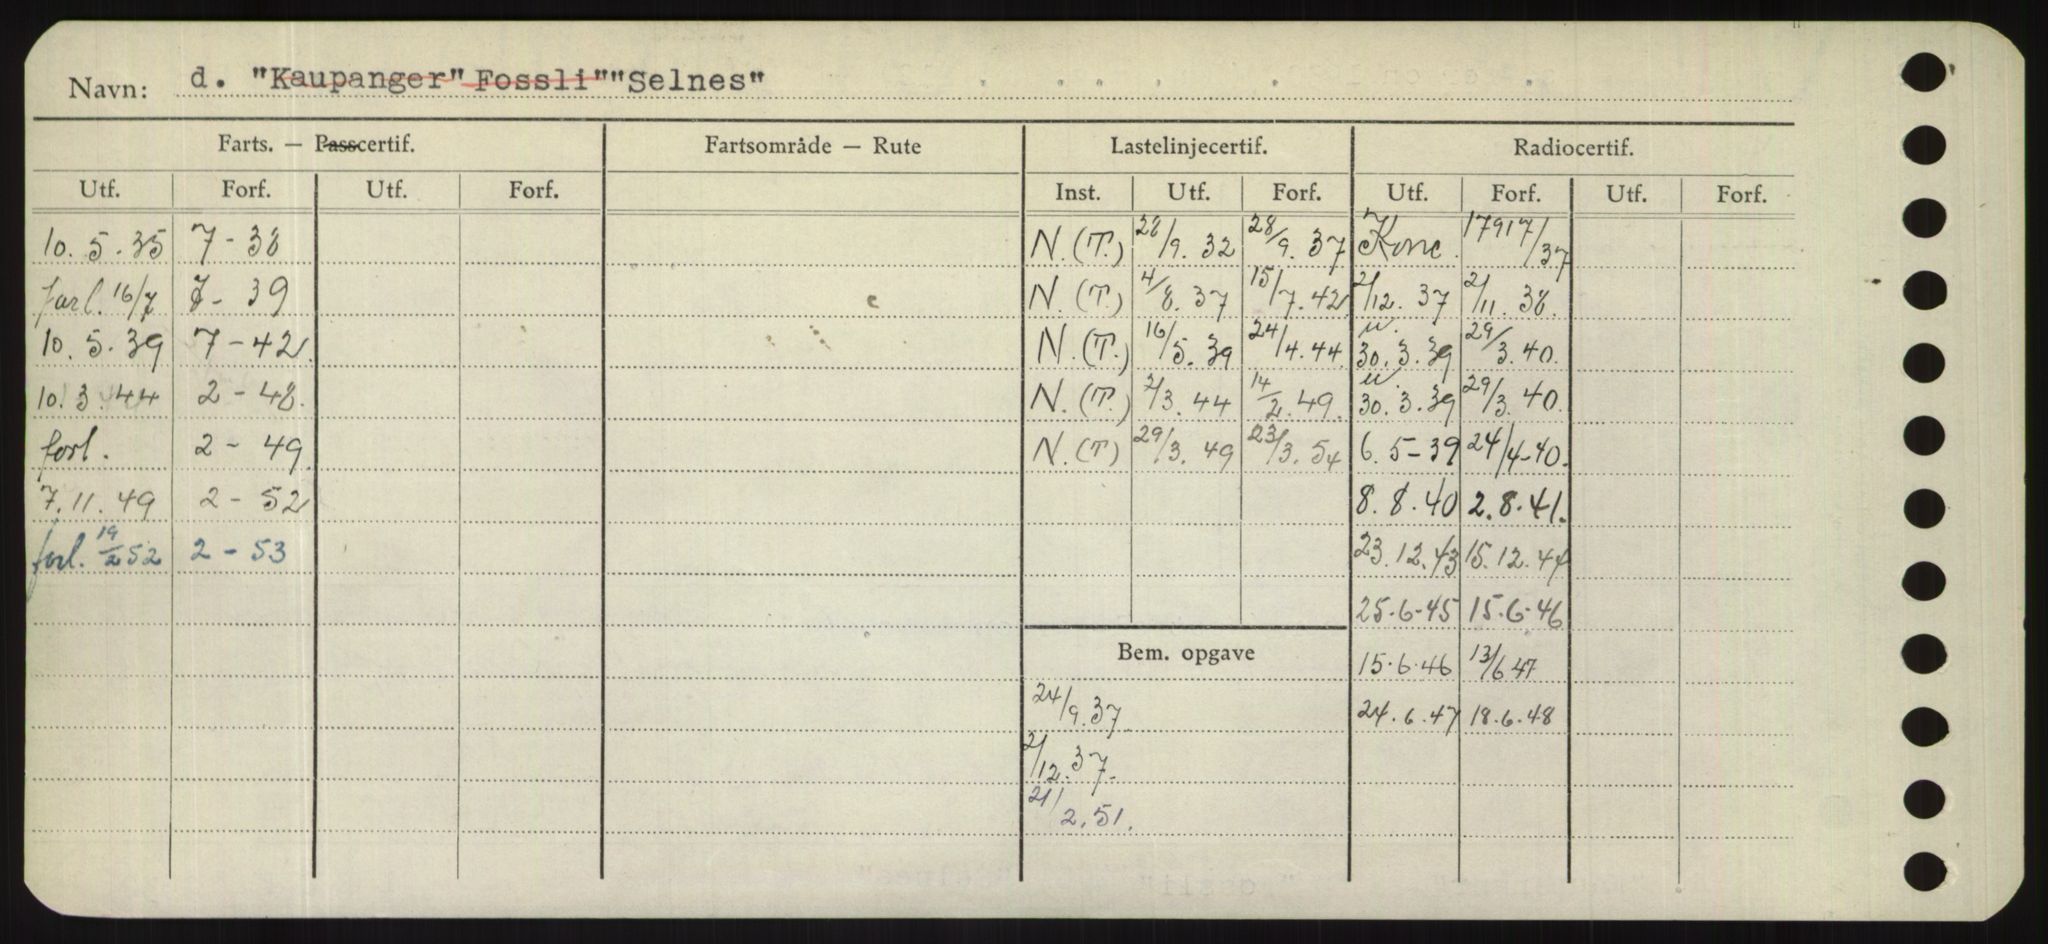 Navn: d. "Kaupanger" Fossli""Selnes"
Farts. — Passcertif. Fartsområde — Rute Lastelinjecertif. Radiocertif.
Utf. Forf. Utf. Forf. Inst. Utf. Forf. Utf. Forf. Utf. Forf.
10. 5. 35 7 - 38 N. (T.) 28/9. 32 28/9. 37 Konc. 17917/37
forl. 16/7 7 - 39 N. (T.) 4/8. 37 15/7. 42 2/12. 37 2/11. 38.
10. 5. 39 7 - 42. N. (T.) 16/5. 39 24/4. 44 u. 30. 3. 39 29/3. 40.
10. 3. 44 2 - 48. N. (T.) 2/3. 44 14/2. 49. u. 30. 3. 39 29/3. 40.
forl. 2 - 49 N. (T) 29/3. 49 23/3. 54 6. 5 - 39 24/4-40.
7. 11. 49 2 - 52 8. 8. 40 2. 8. 41.
forl. 19/2 52 2 - 53 23. 12. 43 15. 12. 44
25-6-45 15-6-46
Bem. opgave 15.6.46 13/6 47
24/9. 37 24. 6. 47 18.6.48
2/12. 37.
21/2. 51.